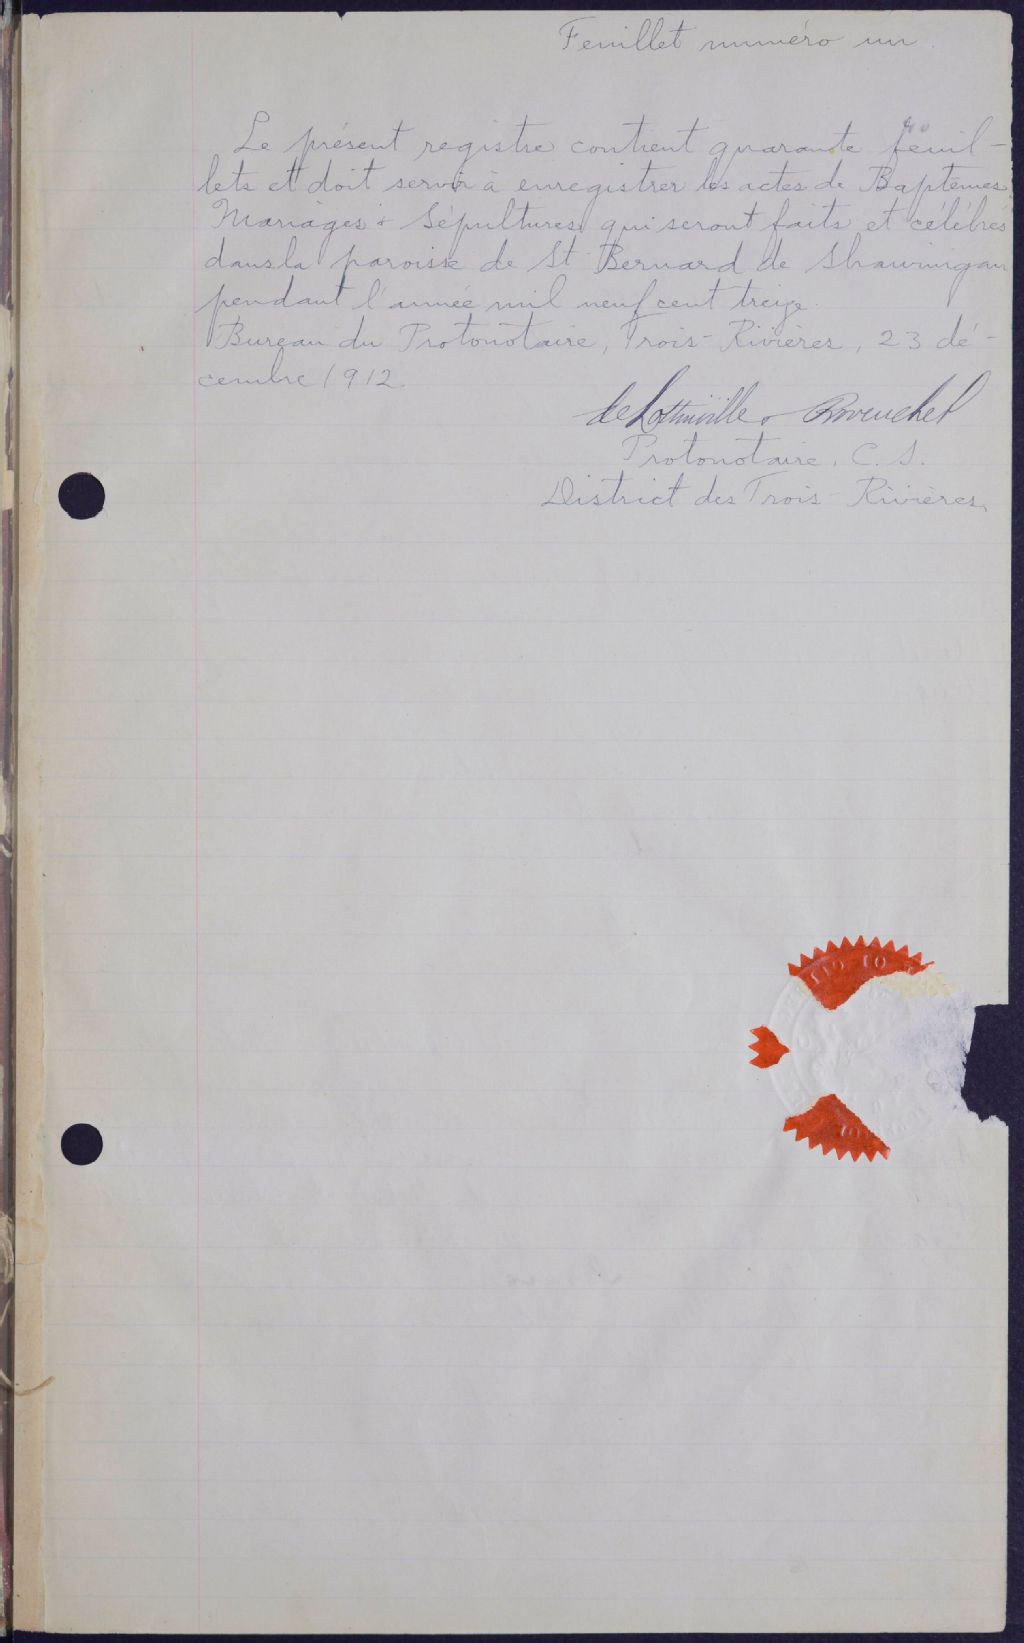 Feuillet numéro un
40
Le présent registre contient quarante feuil-
lets et doit servir à enregistrer les actes de Baptêmes
Mariages & Sépultures qui seront faits et célébrés
dans la paroisse de St Bernard de Shawinigan
pendant l'année mil neuf cent treize.
Bureau du Protonotaire, Trois-Rivières, 23 dé-
cembre 1912.
de Lottinville &
Protonotaire, C. S.
District des Trois-Rivières.